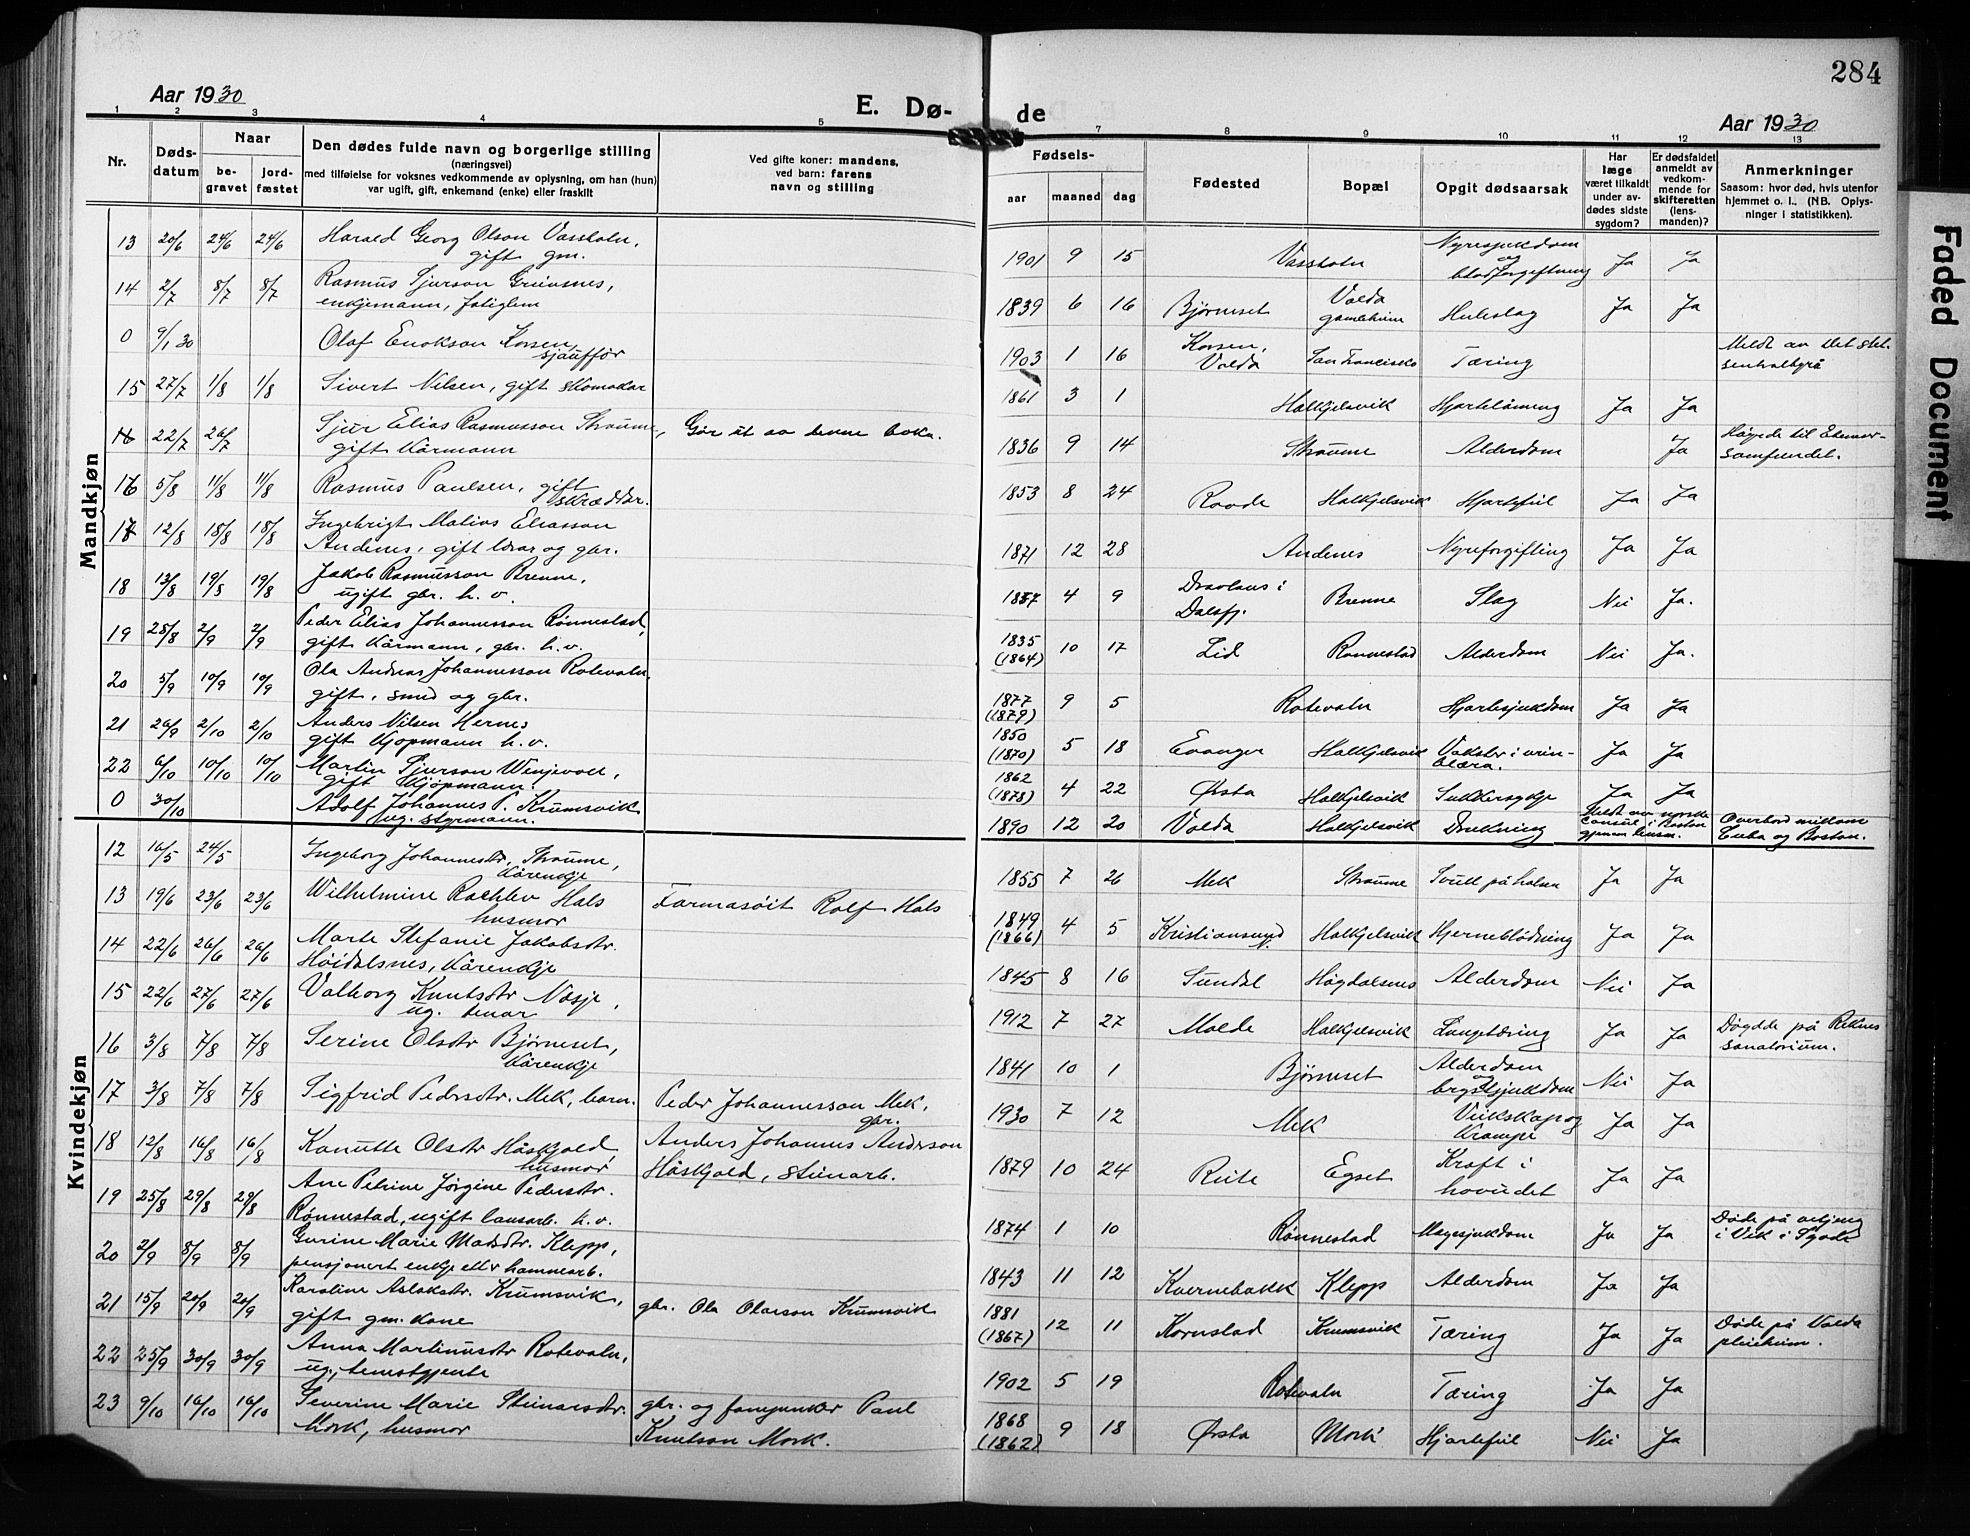 284
Aar 1930
E. Dø-
de
Aar 1930
1 2 3 4 5 7 8 9 10 11 12 13
Nr.
Døds-
datum
Naar
be-
gravet
jord-
fæstet
Den dødes fulde navn og borgerlige stilling
(næringsvei)
med tilføielse for voksnes vedkommende av oplysning, om han (hun)
var ugift, gift, enkemand (enke) eller fraskilt
Ved gifte koner: mandens,
ved barn: farens
navn og stilling
Fødsels-
aar
maaned
dag
Fødested
Bopæl
Opgit dødsaarsak
Har
læge
været tilkaldt
under av-
dødes sidste
sygdom?
Er dødsfaldet
anmeldt av
vedkom-
mende for
skifteretten
(lens-
manden)?
Anmerkninger
Saasom: hvor død, hvis utenfor
hjemmet o. l.. (NB. Oplys-
ninger i statistikken).
Mandkjøn
13 20/6 24/6 24/6 Harald Georg Olson Vassbotn,
gift gm.
1901 9 15 Vassbotn Nyresjukdom
og
blodforgiftning Ja Ja
14 2/7 8/7 8/7 Rasmus Sjurson
enkjemann,
1839 6 16 Bjørneset Volda
gamleheim Ja Ja
0 9/1 30 Olaf Enokson Korsen,
sjauffør
1903 1 16 Korsen,
Volda San Francisko Tæring Meldt av Det stat.
sentralbyrå
15 27/7 1/8 1/8 Sivert Nilsen, gift skomakar
1861 3 1 Halkjelsvik Hjartelåming Ja Ja
22/7 26/7 Sjur Elias Rasmusson Straume,
gift kårmann
Går ut av denne boka.
1836 9 14 Straume Alderdom Ja Høyrde til Ebeneser-
samfundet.
16 5/8 11/8 11/8 Rasmus Paulsen, gift
skræddar.
1853 8 24 Halkjelsvik Hjartefeil Ja Ja
17 12/8 18/8 18/8 Ingebrigt Matias Eliasson
Andenes, gift lærar og gbr.
1871 12 28 Andenes Nyreforgifting Ja Ja
18 13/8 19/8 19/8 Jakob Rasmusson Brenne,
ugift gbr. h. v.
1857 4 9 Dravlaus i
Dalsfj. Brenne Slag Nei Ja.
19 28/8 2/9 2/9 Peder Elias Johannesson Rønnestad,
gift kårmann, gbr. h. v.
1835
(1864) 10 17 Lid Rønnestad Alderdom Nei Ja.
20 5/9 10/9 10/9 Ola Andreas Johannesson Rotevatn,
gift, smed og gbr.
1877
(1879) 9 5 Rotevatn Hjartesjukdom Ja Ja
21 26/9 2/10 2/10 Anders Nilsen Hernes
gift kjøpmann h. v.
1850
(1870) 5 18 Evanger Halkjelsvik Vokster i urin-
blæra. Ja Ja
22 6/10 10/10 10/10 Martin Sjurson Wenjevoll,
gift kjøpmann.
1862
(1878) 4 22 Ørsta Halkjelsvik Sukkersykje Ja Ja
0 30/10 Adolf Johannes P. Krumsvik
ug. styrmann.
1890 12 20 Volda Halkjelsvik Drukning Meldt av norske
consul i Boston
gjenom Overbord millom
Cuba og Boston.
Kvindekjøn
12 16/5 24/5 Ingeborg Johannesdtr. Straume,
kårenkje
1855 7 26 Mek Straume Svull på halsen Ja Ja
13 19/6 23/6 23/6 Wilhelmine Hals
husmor
Farmasøit Rolf Hals
1849
(1866) 4 5 Kristiansund Halkjelsvik Hjerneblødning Ja Ja
14 22/6 26/6 26/6 Marte Stefanie Jakobsdtr.
Høidalsnes, kårenkje
1845 8 16 Sundal Høgdalsnes Alderdom Nei Ja
15 22/6 27/6 27/6 Valborg Knutsdtr Næsje,
ug. tenar
1912 7 27 Molde Halkjelsvik Lungetæring Ja Ja Døydde på Reknes
sanatorium.
16 3/8 7/8 7/8 Serine Olsdtr Bjørneset,
kårenkje
1841 10 1 Bjørneset Alderdom
og
brystsjukdom Nei Ja
17 3/8 7/8 7/8 Sigfrid Pedersdtr. Mek, barn.
Peder Johannesson Mek,
gbr.
1930 7 12 Mek Veikskap og
krampe Ja Ja
18 12/8 16/8 16/8 Kanutte Olsdtr Håskjold,
husmor
Anders Johannes Anderson
Håskjold, steinarb.
1879 10 24 Egset Kræft i
hovudet Ja Ja
19 25/8 29/8 29/8 Ane Petrine Jørgine Pedersdtr.
Rønnestad, ugift lausarb. h. v.
1874 1 10 Rønnestad Magesjukdom Ja Ja Døde på
i Vik i
20 2/9 8/9 8/9 Gurine Marie Madsdtr. Klepp,
pensjonert enkje etter hamnearb.
1843 11 12 Kvernebakk Klepp Alderdom Ja Ja
21 15/9 20/9 20/9 Karoline Aslaksdtr. Krumsvik,
gift gm. kone
gbr. Ola Olarson Krumsvik
1881
(1867) 12 11 Kornstad Krumsvik Tæring Ja Ja Døde på Volda
pleieheim.
22 25/9 30/9 30/9 Anna Martinusdtr Rotevatn,
ug., tenestgjente
1902 5 19 Rotevatn Tæring Ja Ja
23 9/10 16/10 16/10 Severine Marie Steinarsdtr.
Mork, husmor
gbr. og Paul
Knutson Mork.
1868
(1862) 9 18 Ørsta Mork Hjartefeil Nei Ja
Faded Document